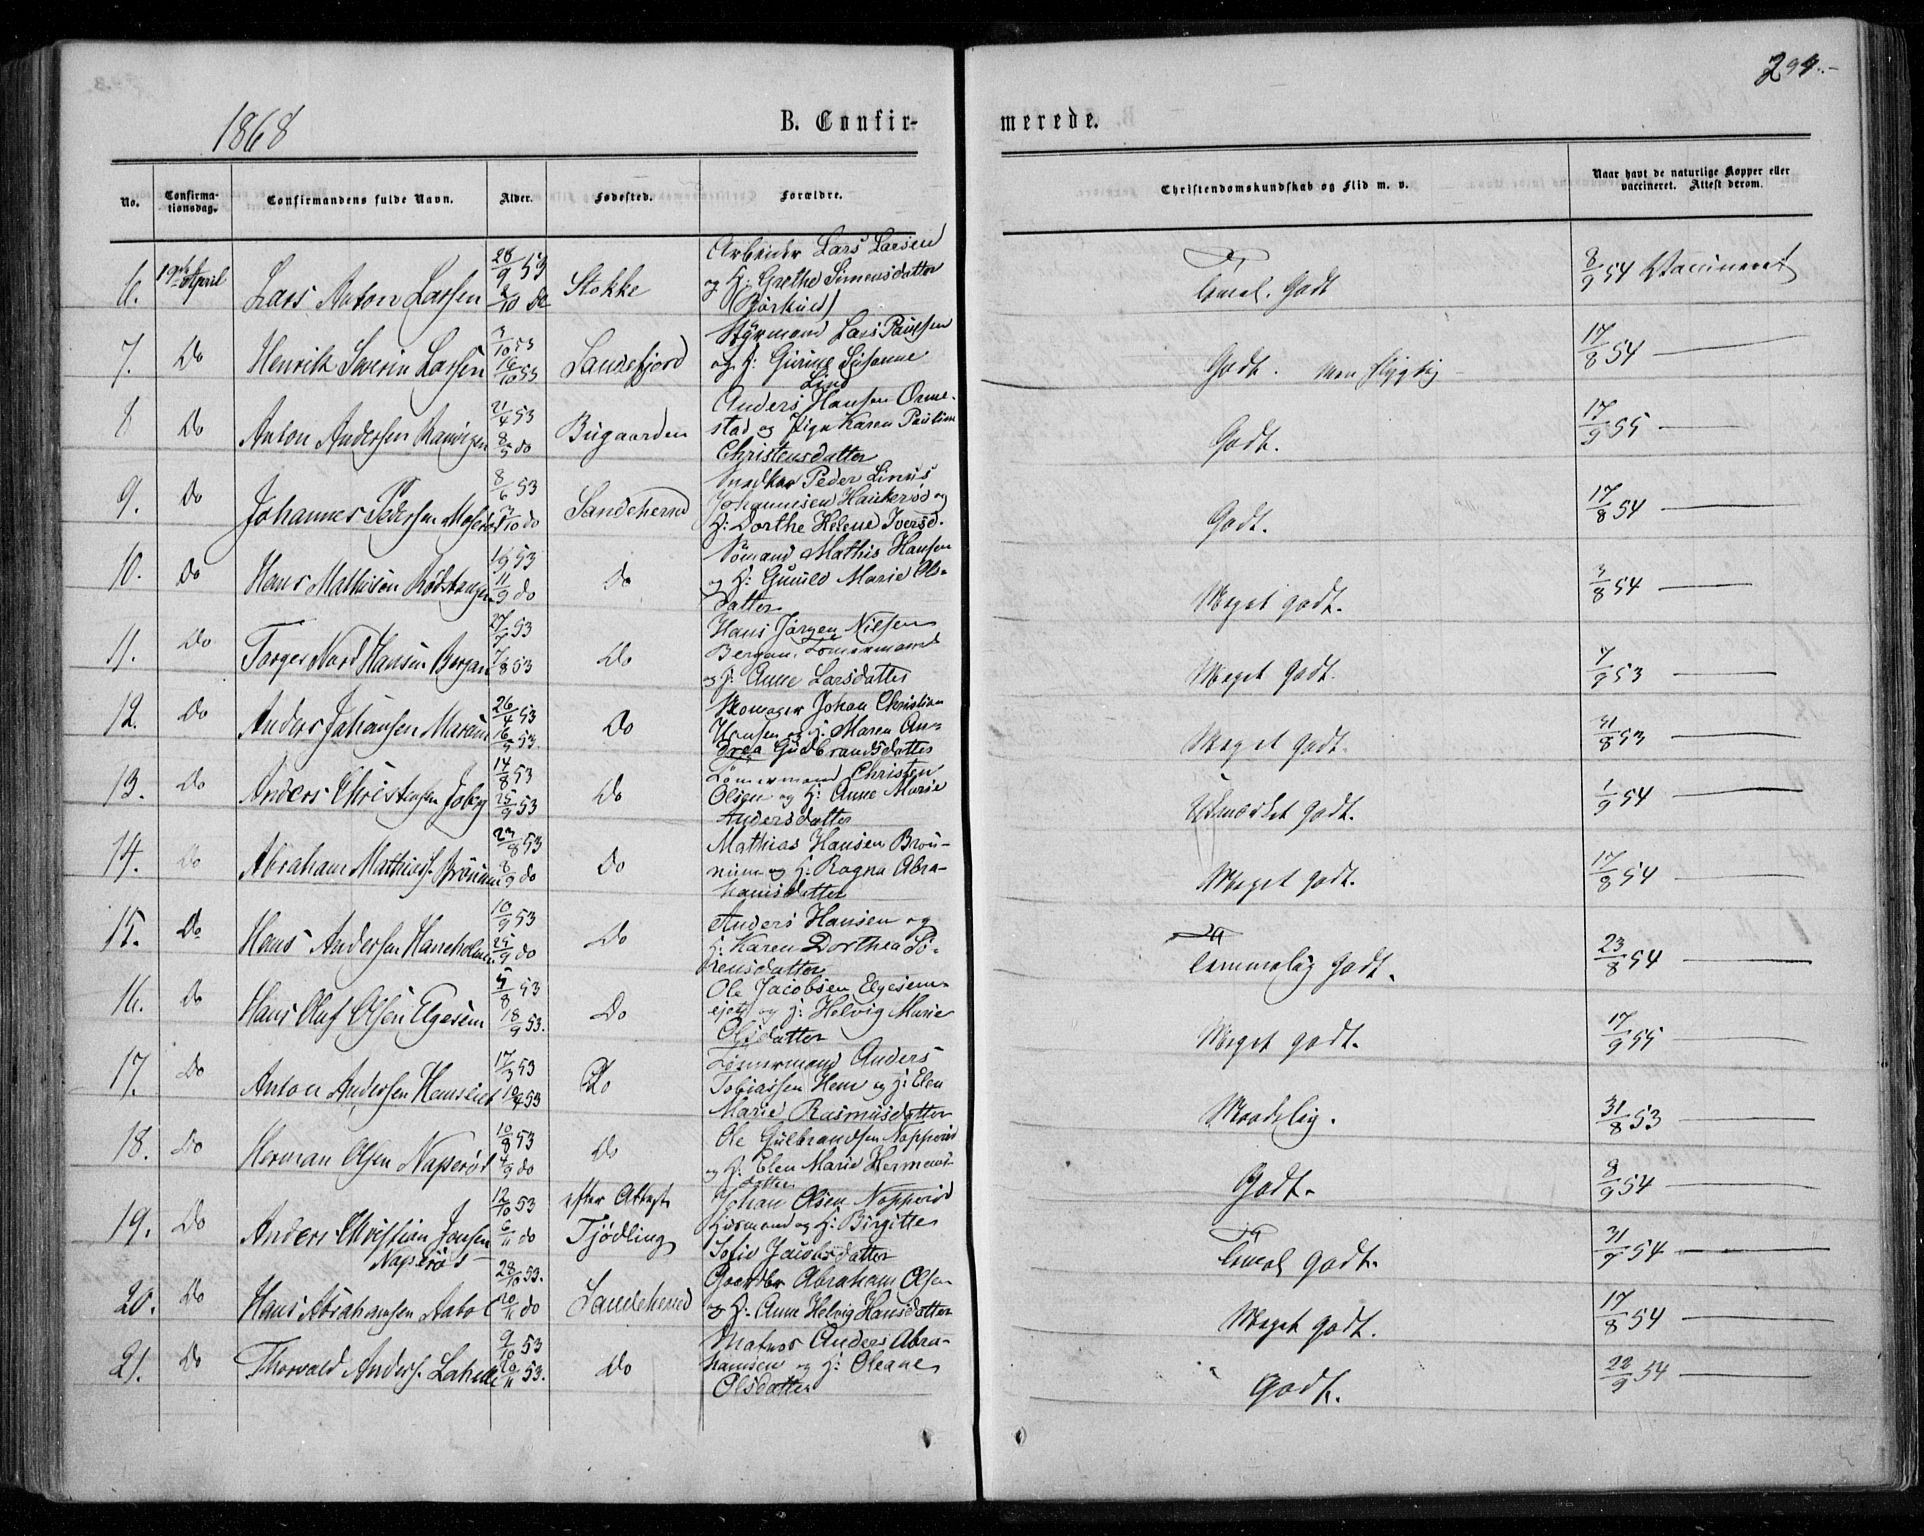 1868
B. Confirmerede.
294.
No.
Confirmationsdag.
Confirmandens fulde Navn.
Alder.
Fødested.
Forældre.
Christendomskundskab og Flid m. v.
Naar havt de naturlige Kopper eller vaccineret. Attest derom.
6. 19de April Lars Anton Larsen 28/9 53 Stokke Arbeider Lars Larsen
og H: Grethe Simensdatter
Godt 8/9 54 Vaccineret
7. Do Henrik Severin Larsen 16/10 53 Sandefjord Styrmand Lars Paulsen
og H: Gurine Susanne
Lind
Godt. men flygtig 17/8 54
8 Do Anton Andersen 21/4 53 8/5 do Bugaarden Anders Hansen Orme-
stad og Pige Karen Pauline
Christensdatter
Godt. 17/9 55
9. Do Johannes Pedersen 8/6 53 do Sandeherred Snedker Peder Linus
Johannesen Haukerød og
H: Dorthe Helene Iversd.
Godt. 17/8 54
10. Do Hans Mathisen 53 11/9 do Do Sømand Mathis Hansen
og H: Gunild Marie Ols-
datter
Meget godt. 3/8 54
11. Do Torger Hansen Bergan 27/7 53 7/8 53 Do Hans Jørgen Nilsen
Bergan, Tømermand
og H: Anne Larsdatter
Meget godt. 7/9 53
12. Do Anders Johansen 26/4 53 16/5 53. Do Skomager Johan Christian
Hansen og H: Maren An-
drea Gudbrandsdatter
Meget godt. 31/8 53
13. Do Anders Christensen 14/8 53 25/9 53 Do Tømermand Christen
Olsen og H: Anne Marie
Andersdatter
Udmærket godt. 1/9 54
14. Do Abraham Mathias. 23/8 53 8/9 do Do Mathias Hansen Brøn-
num og H: Ragna Abra-
hamsdatter
Meget godt. 17/8 54
15. Do Hans Andersen Haneholmen 10/9 53 25/9 do Do Anders Hansen og
H: Karen Dorthea Sø-
rensdatter
Temmelig godt. 23/8 54
16. Do Hans Oluf Olsen Elgesem 5/8 53 18/9 53. Do Ole Jacobsen Elgesem-
ejet og H: Helvig Marie
Olsdatter
Meget godt. 17/9 55
17. Do Anton Andersen 17/3 53 10/4 53 Do Tømermand Anders
Tobiassen Hem og H: Elen
Marie Rasmusdatter
Maadelig. 31/8 53
18. Do Herman Olsen Naperød 10/8 53 4/9 do Do Ole Gulbrandsen Napperød
og H: Elen Marie Hermens-
datter
Godt. 8/9 54
19. Do Anders Christian Jansen
Naperød 12/10 53 6/11 do efter Attest
Tjødling Johan Olsen Napperød
Husmand og H: Birgitte
Sofie Jacobsdatter
godt. 54
20. Do Hans Abrahamsen 28/10 53. 20/11 do Sandeherred Gaardbr Abraham Olsen
og H: Anne Helvig Hansdatter
Meget godt. 17/8 54
21. Do Thorvald Anders. 9/10 53 20/11 53. Do Matros Anders Abra-
hamsen og H: Oleane
Olsdatter
Godt. 22/9 54